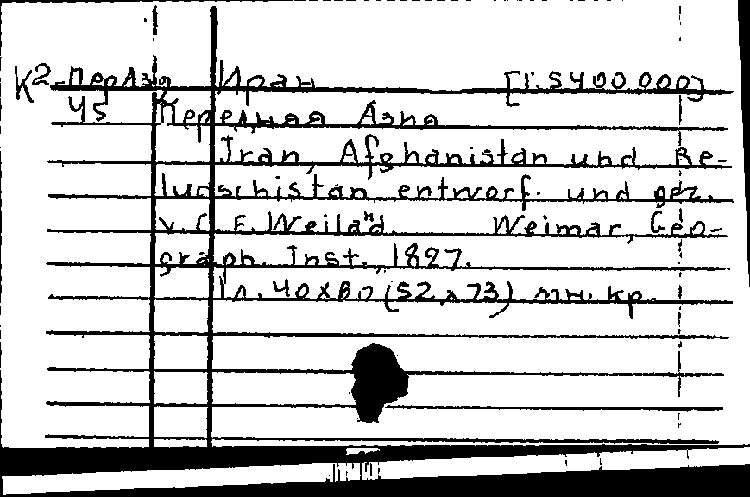 К2-ПерАзя Иран [1:5400000]
45 Передняя Азия
Iran, Afghanistan und Be-
ludschistan entworf. und gez.
v. C. F. Weiland. Weimar, Geo-
graph. Inst., 1827.
1 л. 40x60 (52x73) мн. кр.